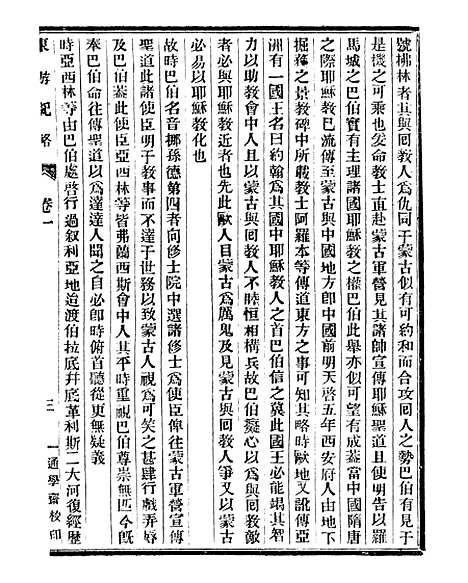 號拂林者其與回教人為仇同于蒙古似有可約而合攻回人之勢巴伯有見于
是機之可乘也爰命教士直赴蒙古軍營見其諸帥宣傳耶穌聖道且使明於羅
馬城之巴伯實有主理諸國耶穌教之權巴伯此舉亦似可望有成蓋當中國隋唐
之際耶穌教已流傳至蒙古與中國地方卽中國前明天啓五年西安府人由地下
掘獲之景教碑中所載教士阿羅本等傳道東方之事可知其略時歐地又訛傳亞
洲有一國王名曰約翰爲其國中耶穌教人之首巴伯信之冀此國王必能竭其智
力以助教會中人且以蒙古與回教人不睦恒相構兵故巴伯癡心以爲蒙古
者必與耶穌教近者也先此歐人目蒙古爲厲鬼及見蒙古與回教人爭又以蒙古
必易以耶穌教化也
故時巴伯名音挪孫德第四者向修士院中選諸修士爲使臣俾往蒙古軍營宣傳
聖道此諸使臣明于教事而不達于世務以致蒙古人視爲可笑之甚肆行戲弄辱
及巴伯蓋此使臣亞西林等皆弗蘭西斯會中人其平時重視巴伯尊崇無匹今旣
奉巴伯命往傳聖道以爲達達人聞之自必卽時俯首聽從更無疑義
時亞西林等由巴伯處啓行過叙利亞地迨渡伯拉底幷底革利斯二大河復經歷
東游紀略
卷一
三
通學齋校印